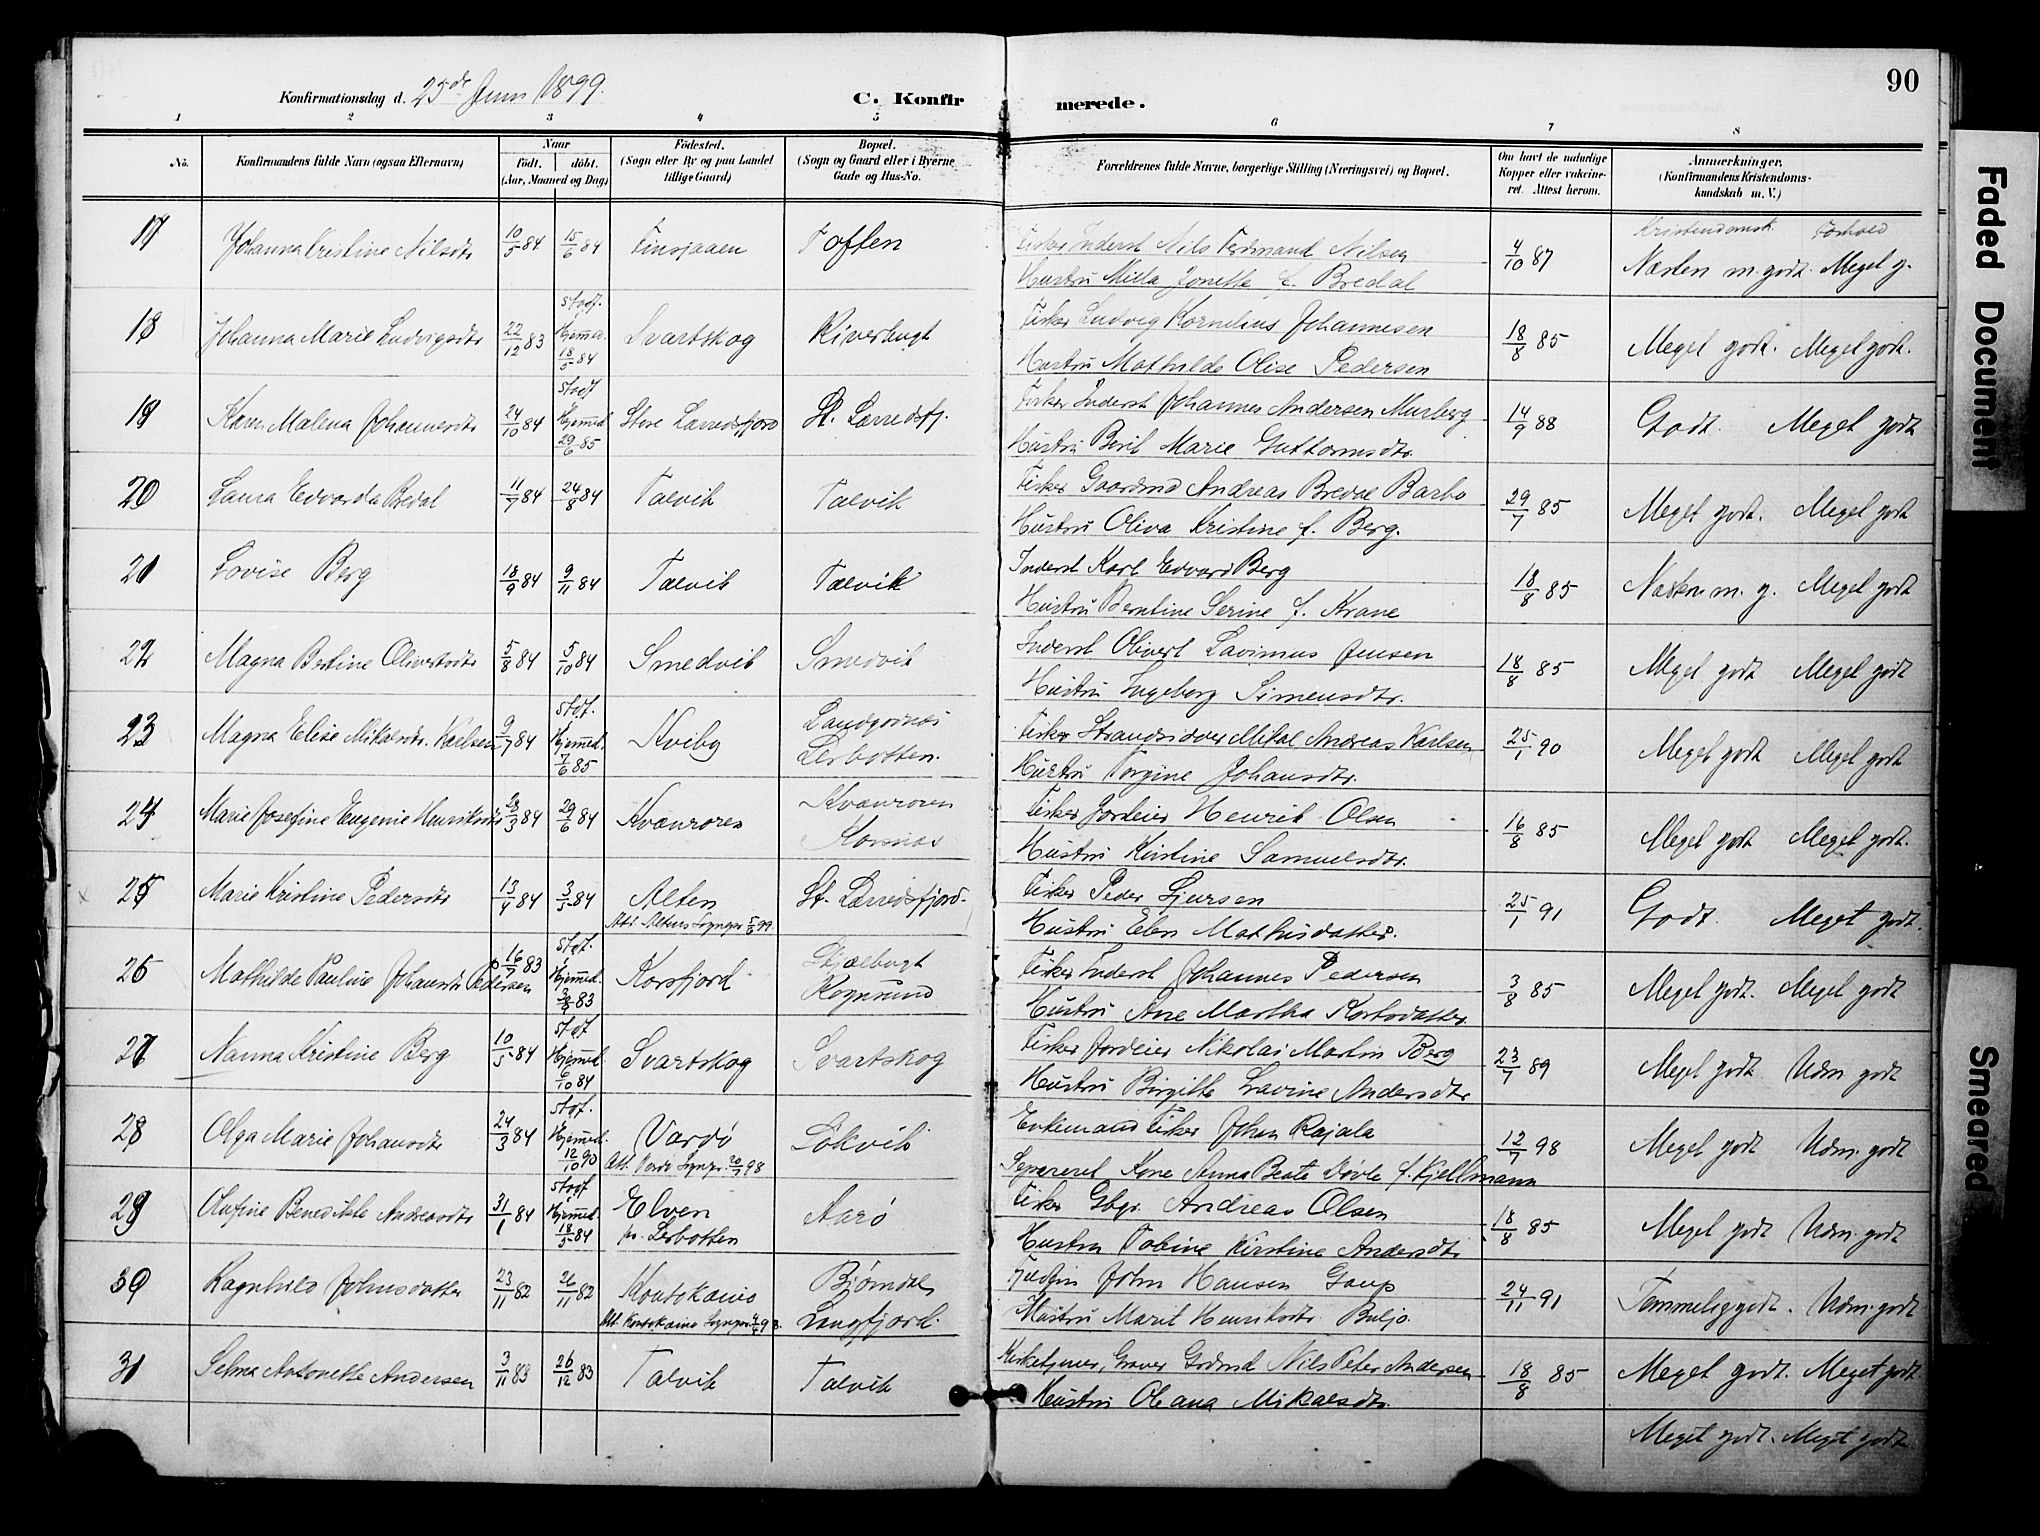 90
Konfirmationsdag d. 25de Juni 1899.
C. Konfirmerede.
1 2 3 4 5 6 7 8
No.
Konfirmandens fulde Navn (ogsaa Efternavn)
Naar
født. døbt.
(Aar, Maaned og Dag)
Fødested.
(Sogn eller By og paa Landet
tillige Gaard)
Bopæl.
(Sogn og Gaard eller i Byerne
Gade og Hus-No.
Forældrenes fulde Navne, borgerlige Stilling (Næringsvei) og Bopæl.
Om havt de naturlige
Kopper eller vakcine-
ret. Attest herom.
Anmærkninger.
(Konfirmandens Kristendoms-
kundskab m. V.)
Kristendomsk. Forhold
17 Johanna Kristine Nilsdtr 10/5 84 15/6 84 Finsjaaen Toften Fisker Inderst Nils Ferdinand Nilsen 4/10 87 Næsten m. godt. Meget g.
Hustru Milla Jonette f. Bredal
18 Johanna Marie Ludvigsdtr 22/12 83 stadf. Hjemmed. 18/5 84 Svartskog Kiverbugt Fisker Ludvig Kornelius Johannesen 18/8 85 Meget godt. Meget godt.
Hustru Mathilde Olise Pedersen
19 Karen Malena Johannesdtr 24/10 84 stadf. Hjemmed. 29/6 85 Store Lerredsfjord St. Lerredsfj. Fisker Inderst Johannes Andersen Murberg 14/9 88 Godt. Meget godt
Hustru Beril Marie Guttormsdtr.
20 Laura Edvarda Bredal 11/7 84 24/8 84 Talvik Talvik Fisker Gaardmd Andreas Bredal Barbo 29/7 85 Meget godt. Meget godt
Hustru Oliva Kristine f. Berg.
21 Lovise Berg 18/9 84 9/11 84 Talvik Talvik Inderst Karl Edvard Berg 18/8 85 Næsten m. g. Meget godt
Hustru Berntine Serine f. Krane
22 Magna Bertine Olivertsdtr 5/8 84 5/10 84 Smedvik Smedvik Inderst Olivert Lavinus Jensen 18/8 85 Meget godt Meget godt
Hustru Ingeborg Simensdtr.
23 Magna Elise Mikalsdtr. Karlsen 9/7 84 stdf. Hjemmed. 7/6 85 Kviby Lerbotten. Fisker Strandsidder Mikal Andreas Karlsen 25/1 90 Meget godt Meget godt
Hustru Torgine Johansdtr.
24 Marie Josefine Eugenie Henriksdtr 28/3 84 29/6 84 Kvænroren Kvænroren Korsnes Fisker Jordeier Henrik Olsen 16/8 85 Meget godt Meget godt.
Hustru Kirstine Samuelsdtr.
25 Marie Kristine Pedersdtr 13/4 84 3/5 84 Alten St. Lerredsfjord. Fisker Peder Sjursen 25/1 91 Godt. Meget godt.
Att. Altens Sogngpr. 5/6 99. Hustru Elen Mathisdatter.
26 Mathilde Pauline Johansdtr Pedersen 16/7 83 stdf. Hjemmed. 83 Korsfjord Skjælbugt Rognsund Fisker Inderst Johannes Pedersen 3/8 85 Meget godt. Meget godt
Hustru Ane Martha Kortsdatter
27 Nanna Kristine Berg 10/5 84 stdf. Hjemmed. 6/10 84 Svartskog Svartskog Fisker Jordeier Nikolai Martin Berg 23/7 89 Meget godt Udm. godt
Hustru Birgitte Lavine Andersdtr
28 Olga Marie Johansdtr 24/3 84 stdf. Hjemmed. 12/10 90 Vardø Løkvik Enkemand Fisker Johan Rajala 12/7 98 Meget godt Udm. godt
Att. Vardø Sogngpr. 20/7 98 Separeret Kone Anna Beate Døvle f. Kjellmann
29 Olufine Benedikte Andreasdtr 31/1 84 stadf. Hjemmed. 18/5 84 Elven pr. Lerbotten Aarø Fisker Gbgr. Andreas Olsen 18/8 85 Meget godt Udm. godt
Hustru Tobine Kirstine Andersdtr.
30 Ragnhild Johnsdatter 23/11 82 26/11 82 Koutokeino Bjørndal Langfjord. Fjeldfin John Hansen Gaup 24/11 91 Temmelig godt. Udm. godt
Att. Koutokeino Sogngpr. Hustru Marit Henriksdtr. Buljo.
31 Selma Antonette Andersen 3/11 83 26/12 83 Talvik Talvik Kirketjener, Graver Grdmd Nils Peter Andersen 18/8 85 Meget godt. Meget godt.
Hustru Oleana Mikalsdtr.
Meget godt. Meget godt
Faded Document
Smeared